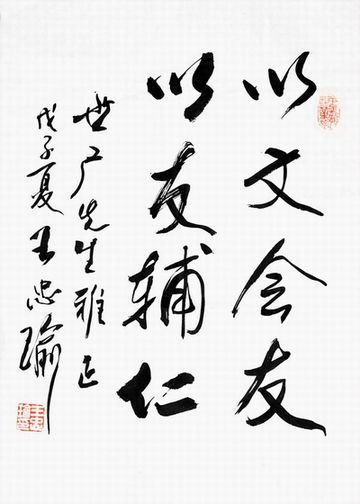 以文会友
以友辅仁
世广先生雅正
戊子夏王忠瑜